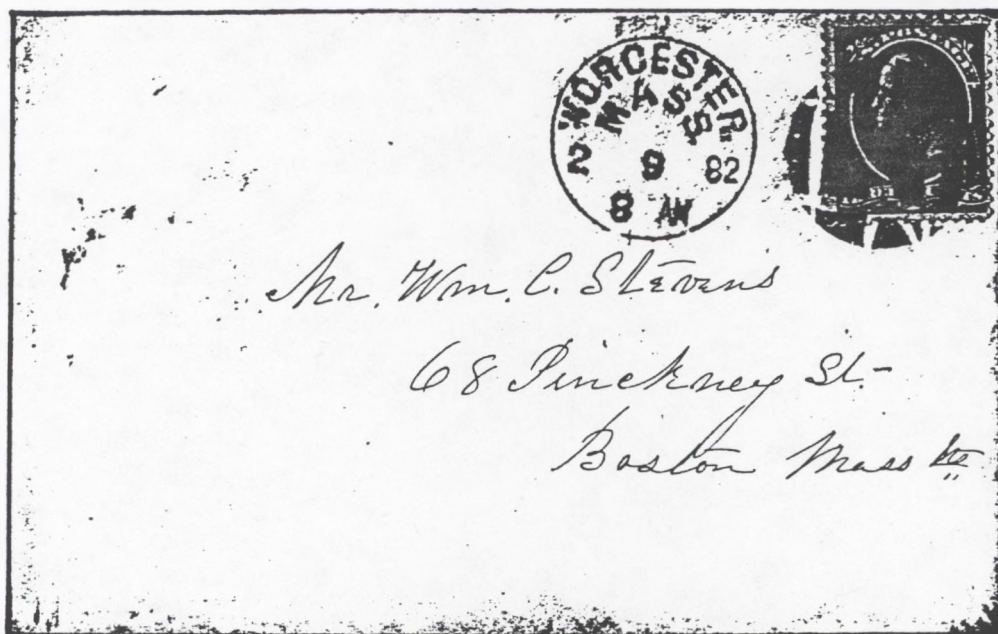 WORCESTER
MASS
2 9 82
8 AM
Mr. Wm. C. Stevens
68 Pinckney St.
Boston Mass